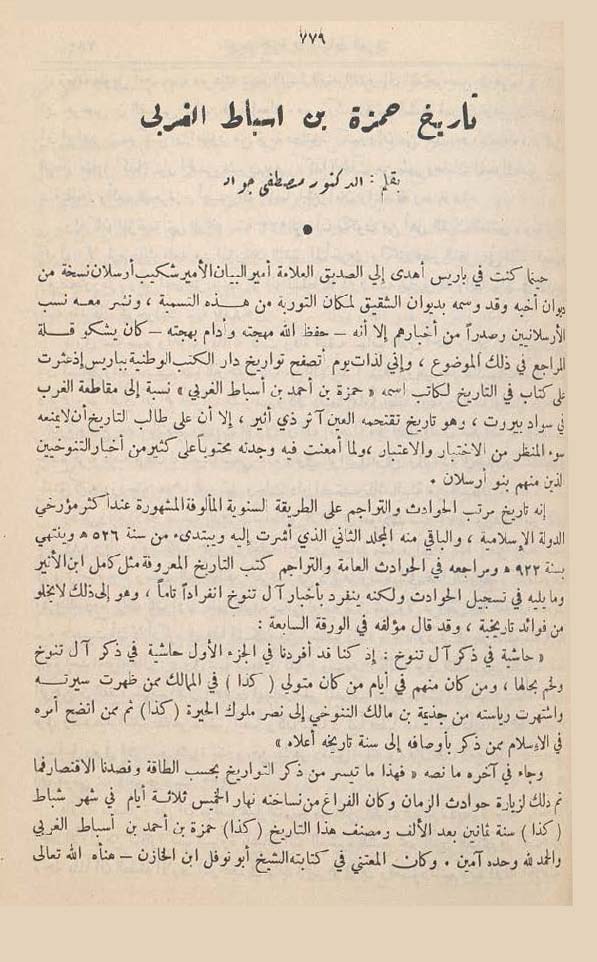 ٧٧٩
تاريخ حمزة بن اسباط الغربي
بقلم : الدكتور مصطفى جواد
حينما كنت في باريس أهدى إلي الصديق العلامة أمير البيان الأمير شكيب أرسلان نسخة من
ديوان أخيه وقد وسمه بديوان الشقيق لمكان التورية من هـذه التسمية ، ونشر معـه نسب
الأرسلانيين وصدراً من أخبارهم إلا أنه – حفظ الله مهجته وأدام بهجته – كان يشكو قـلة
المراجع في ذلك الموضوع ، وإني لذات يوم أتصفح تواريخ دار الكتب الوطنية بباريس إذ عثرت
على كتاب في التاريخ لكاتب اسمه « حمزة بن أحمد بن أسباط الغربي » نسبة إلى مقاطعة الغرب
في سواد بيروت ، وهو تاريخ تقتحمه العين آثر ذي أثير ، إلا أن على طالب التاريخ أن لا يمنعه
سوء المنظر من الاختبار والاعتبار ، ولما أمعنت فيه وجدته محتوياً على كثير من أخبار التنوخيين
الذين منهم بنو أرسلان .
إنه تاريخ مرتب الحوادث والتراجم على الطريقة السنوية المألوفة المشهورة عند أكثر مؤرخي
الدولة الإسلامية ، والباقي منه المجلد الثاني الذي أشرت إليه ويبتدىء من سنة ٥٢٦ هـ وينتهي
بسنة ٩٢٢ هـ ومراجعه في الحوادث العامة والتراجم كتب التاريخ المعروفة مثل كامل ابن الأثير
وما يليه في تسجيل الحوادث ولكنه ينفرد بأخبار آل تنوخ انفراداً تاماً ، وهو إلى ذلك لا يخلو
من فوائد تاريخية ، وقد قال مؤلفه في الورقة السابعة :
« حاشية في ذكر آل تنوخ : إذ كنا قد أفردنا في الجزء الأول حاشية في ذكر آل تنوخ
ولخم بحالها ، ومن كان منهم في أيام من كان متولي ( كذا ) في الممالك ممن ظهرت سيرتـه
واشتهرت رياسته من جذيمة بن مالك التنوخي إلى نصر ملوك الحيرة ( كذا ) ثم ممن اتضح أمره
في الإسلام ممن ذكر بأوصافه إلى سنة تاريخه أعلاه »
وجاء في آخره ما نصه « فهذا ما تيسر من ذكر التواريخ بحسب الطاقة وقصدنا الاقتصار فما
تم ذلك لزيارة حوادث الزمان وكان الفراغ من نساخته نهار الخميس ثلاثـة أيام في شهر شباط
( كذا ) سنة ثمانين بعد الألف ومصنف هذا التاريخ ( كذا ) حمزة بن أحمد بن أسباط الغربي
والحمد لله وحده آمين . وكان المعتني في كتابته الشيخ أبو نوفل ابن الخازن – هنأه الله تعالى